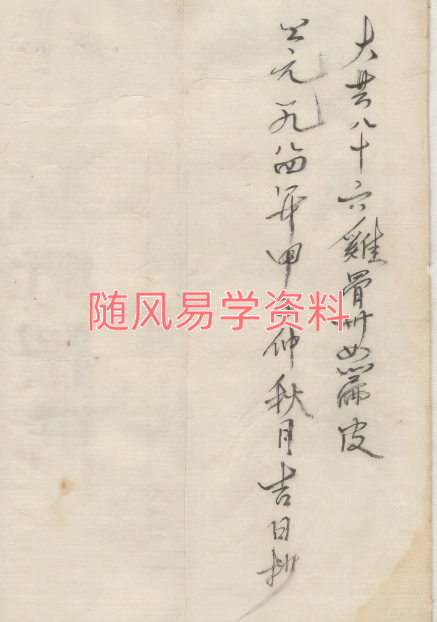 大共八十六雞骨皮
公元一九八四年甲子仲秋月吉日抄
随风易学资料